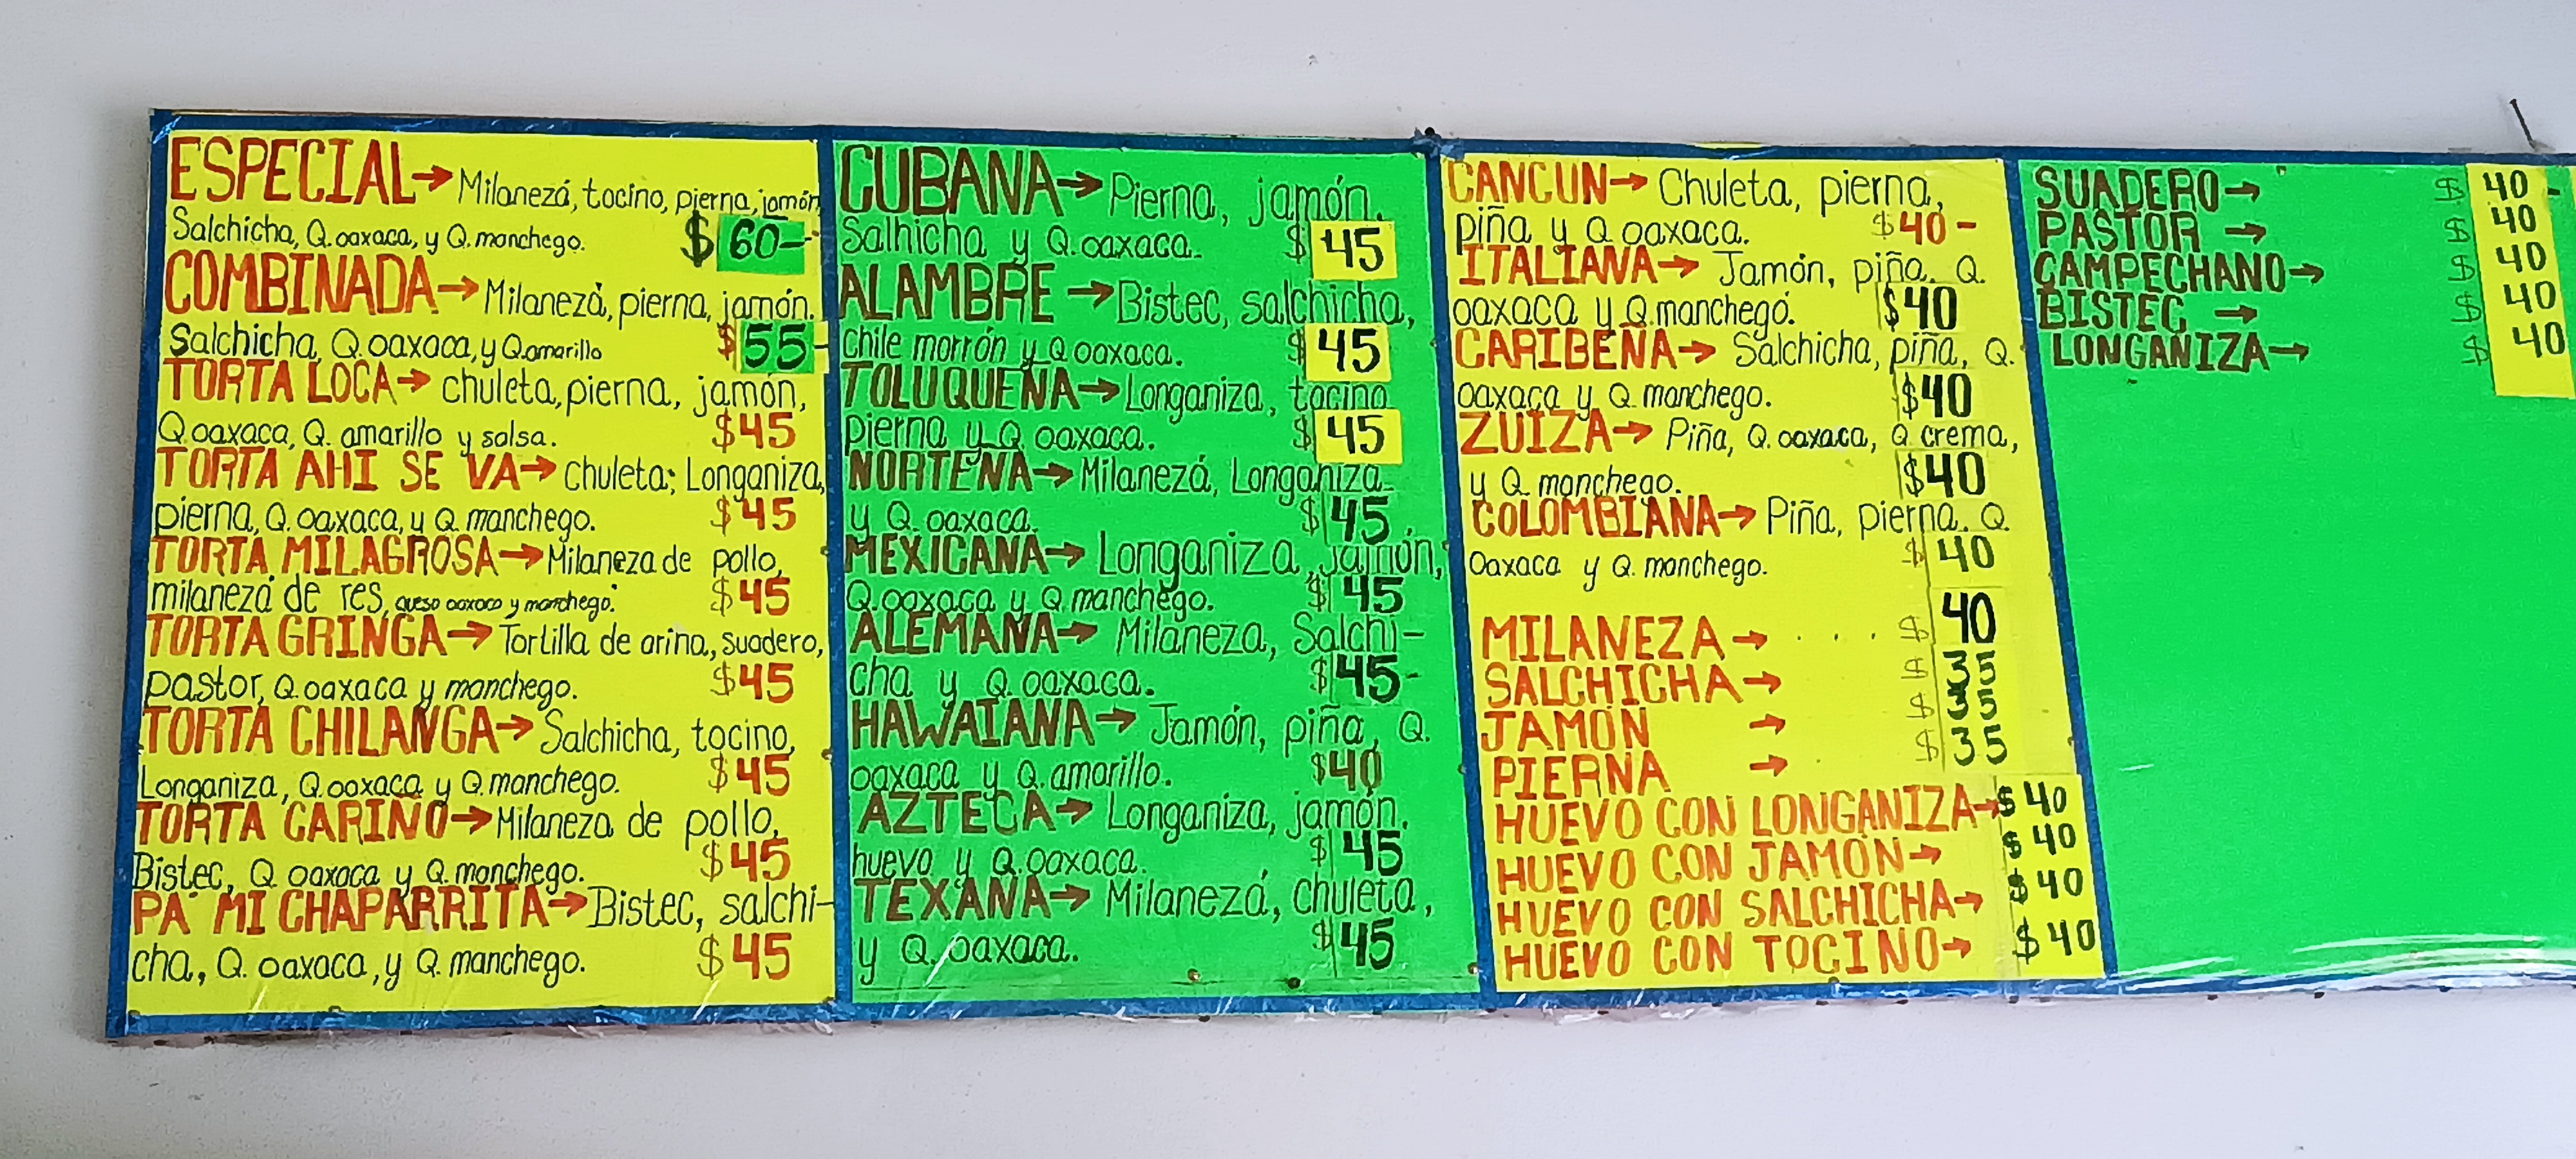 ESPECIAL→ Milanezá, tocino, pierna, jamón
Salchicha, Q. oaxaca, y Q. manchego. $60-
COMBINADA→ Milanezá, pierna, jamón.
Salchicha, Q. oaxaca, y Q. amarillo $55-
TORTA LOCA→ chuleta, pierna, jamón,
Q. oaxaca, Q. amarillo y salsa. $45
TORTA AHI SE VA→ Chuleta; Longaniza,
pierna, Q. oaxaca, y Q. manchego. $45
TORTA MILAGROSA→ Milaneza de pollo,
milanezá de res, queso oaxaca y manchego. $45
TORTA GRINGA→ Tortilla de arina, suadero,
pastor, Q. oaxaca y manchego. $45
TORTA CHILANGA→ Salchicha, tocino,
Longaniza, Q. oaxaca y Q. manchego. $45
TORTA CARIÑO→ Milaneza de pollo,
Bistec, Q. oaxaca y Q. manchego. $45
PA' MI CHAPARRITA→ Bistec, salchi-
cha, Q. oaxaca, y Q. manchego. $45
CUBANA→ Pierna, jamón,
Salhicha y Q. oaxaca. $45
ALAMBRE→ Bistec, salchicha,
chile morrón y Q oaxaca. $45
TOLUQUEÑA→ Longaniza, tocino
pierna y Q. oaxaca. $45
NORTEÑA→ Milanezá, Longaniza
y Q. oaxaca. $45
MEXICANA→ Longaniza, jamón,
Q. oaxaca y Q. manchego. $45
ALEMANA→ Milaneza, Salchi-
cha y Q. oaxaca. $45-
HAWAIANA→ Jamón, piña, Q.
oaxaca y Q. amarillo. $40
AZTECA→ Longaniza, jamón,
huevo y Q. oaxaca. $45
TEXANA→ Milanezá, chuleta,
y Q. oaxaca. $45
CANCUN→ Chuleta, pierna,
piña y Q. oaxaca. $40-
ITALIANA→ Jamón, piña, Q.
oaxaca y Q. manchego. $40
CARIBEÑA→ Salchicha, piña, Q.
oaxaca y Q. manchego. $40
ZUIZA→ Piña, Q. oaxaca, Q. crema,
y Q. manchego. $40
COLOMBIANA→ Piña, pierna. Q.
Oaxaca y Q. manchego. $40
MILANEZA→ . . . $40
SALCHICHA→ $35
JAMÓN → $35
PIERNA → $35
HUEVO CON LONGANIZA→ $40
HUEVO CON JAMÓN→ $40
HUEVO CON SALCHICHA→ $40
HUEVO CON TOCINO→ $40
SUADERO→ $40-
PASTOR → $40
CAMPECHANO→ $40
BISTEC → $40
LONGANIZA→ $40